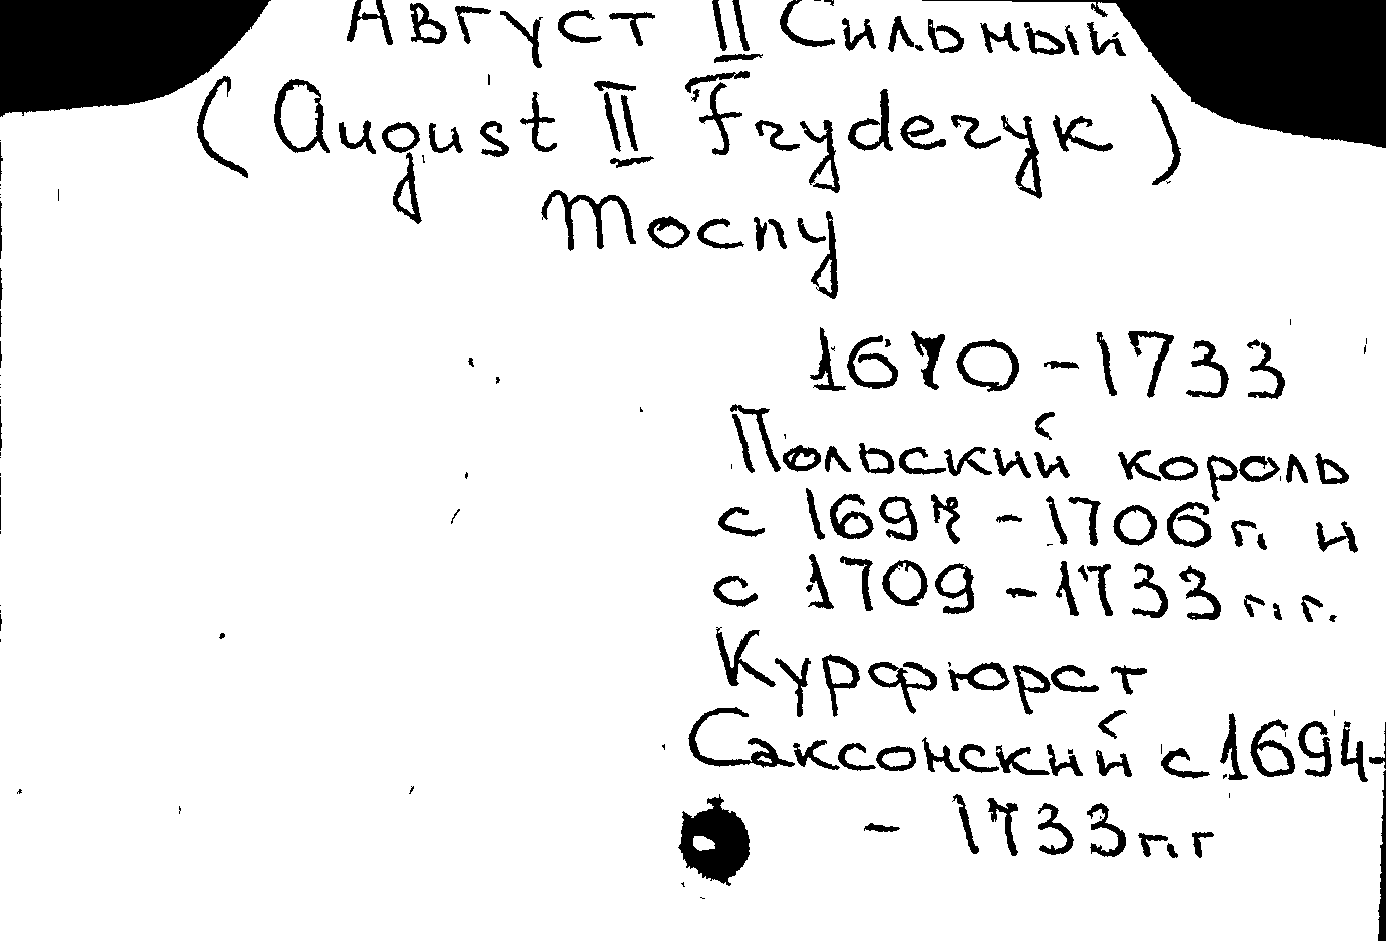 Август II Сильный
(August II Fryderyk)
Mocny
1670-1733
Польский король
с 1697-1706 г. и
с 1709-1733 г.г.
Курфюрст
Саксонский с 1694-
- 1733 г.г